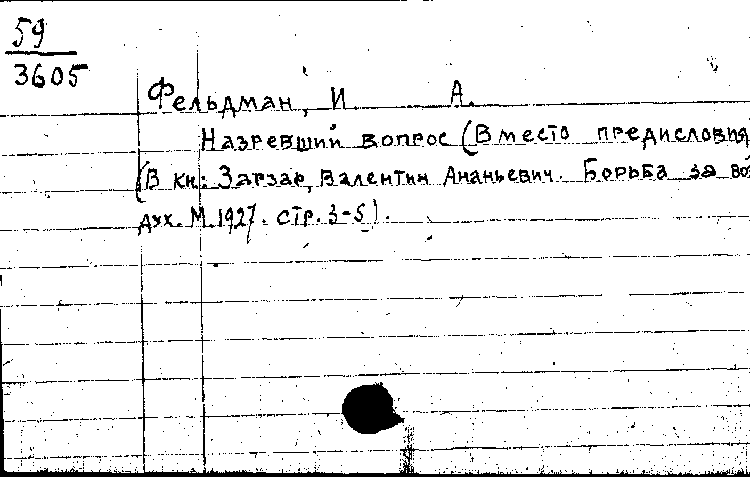 59
3605
Фельдман, И. А.
Назревший вопрос (Вместо предисловия
(В кн: Зарзар, Валентин Ананьевич. Борьба за воз
дух. М. 1927. стр. 3-5).